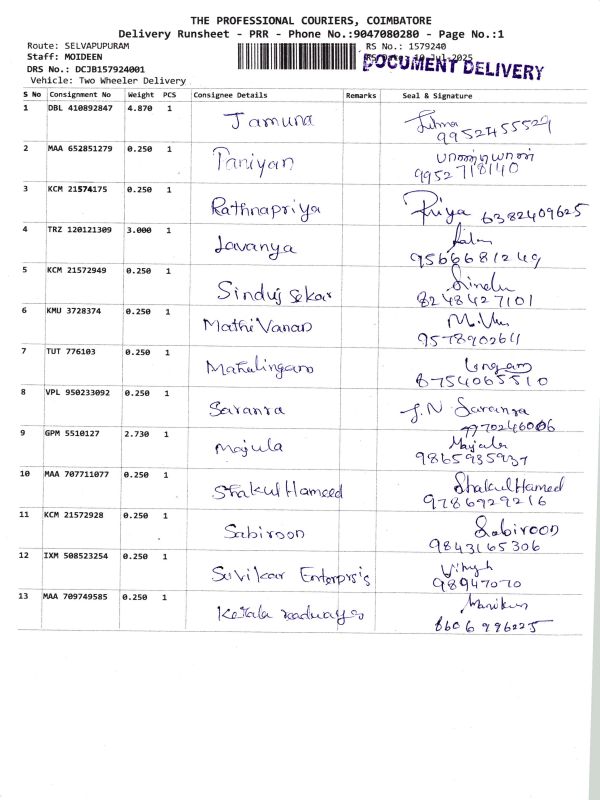 THE PROFESSIONAL COURIERS, COIMBATORE
Delivery Runsheet - PRR - Phone No.:9047080280 - Page No.:1
Route: SELVAPUPURAM RS No.: 1579240
Staff: MOIDEEN 10-Jul-2025
DOCUMENT DELIVERY
DRS No.: DCJB157924001
Vehicle: Two Wheeler Delivery
S No Consignment No Weight PCS Consignee Details Remarks Seal & Signature
1 DBL 410892847 4.870 1 Jamuna
9952455529
2 MAA 652851279 0.250 1 Paniyan பாண்டியான்
9952718140
3 KCM 21574175 0.250 1 Rathnapriya Priya 6382409625
4 TRZ 120121309 3.000 1 Lavanya
9566681249
5 KCM 21572949 0.250 1 Sinduj sekar Sindu
8248427101
6 KMU 3728374 0.250 1 MathiVanan
957890264
7 TUT 776103 0.250 1 Mahalingam Lingam
8754065510
8 VPL 950233092 0.250 1 Saranya J.N Saranya
9770246006
9 GPM 5510127 2.730 1 Majula Majula
9865935937
10 MAA 707711077 0.250 1 Shakul Hameed Shakul Hamed
9786929216
11 KCM 21572928 0.250 1 Sabiroon Sabiroon
9843165306
12 IXM 508523254 0.250 1 Suvikar Enterprsis
98947070
13 MAA 709749585 0.250 1 Kerala
8606996225